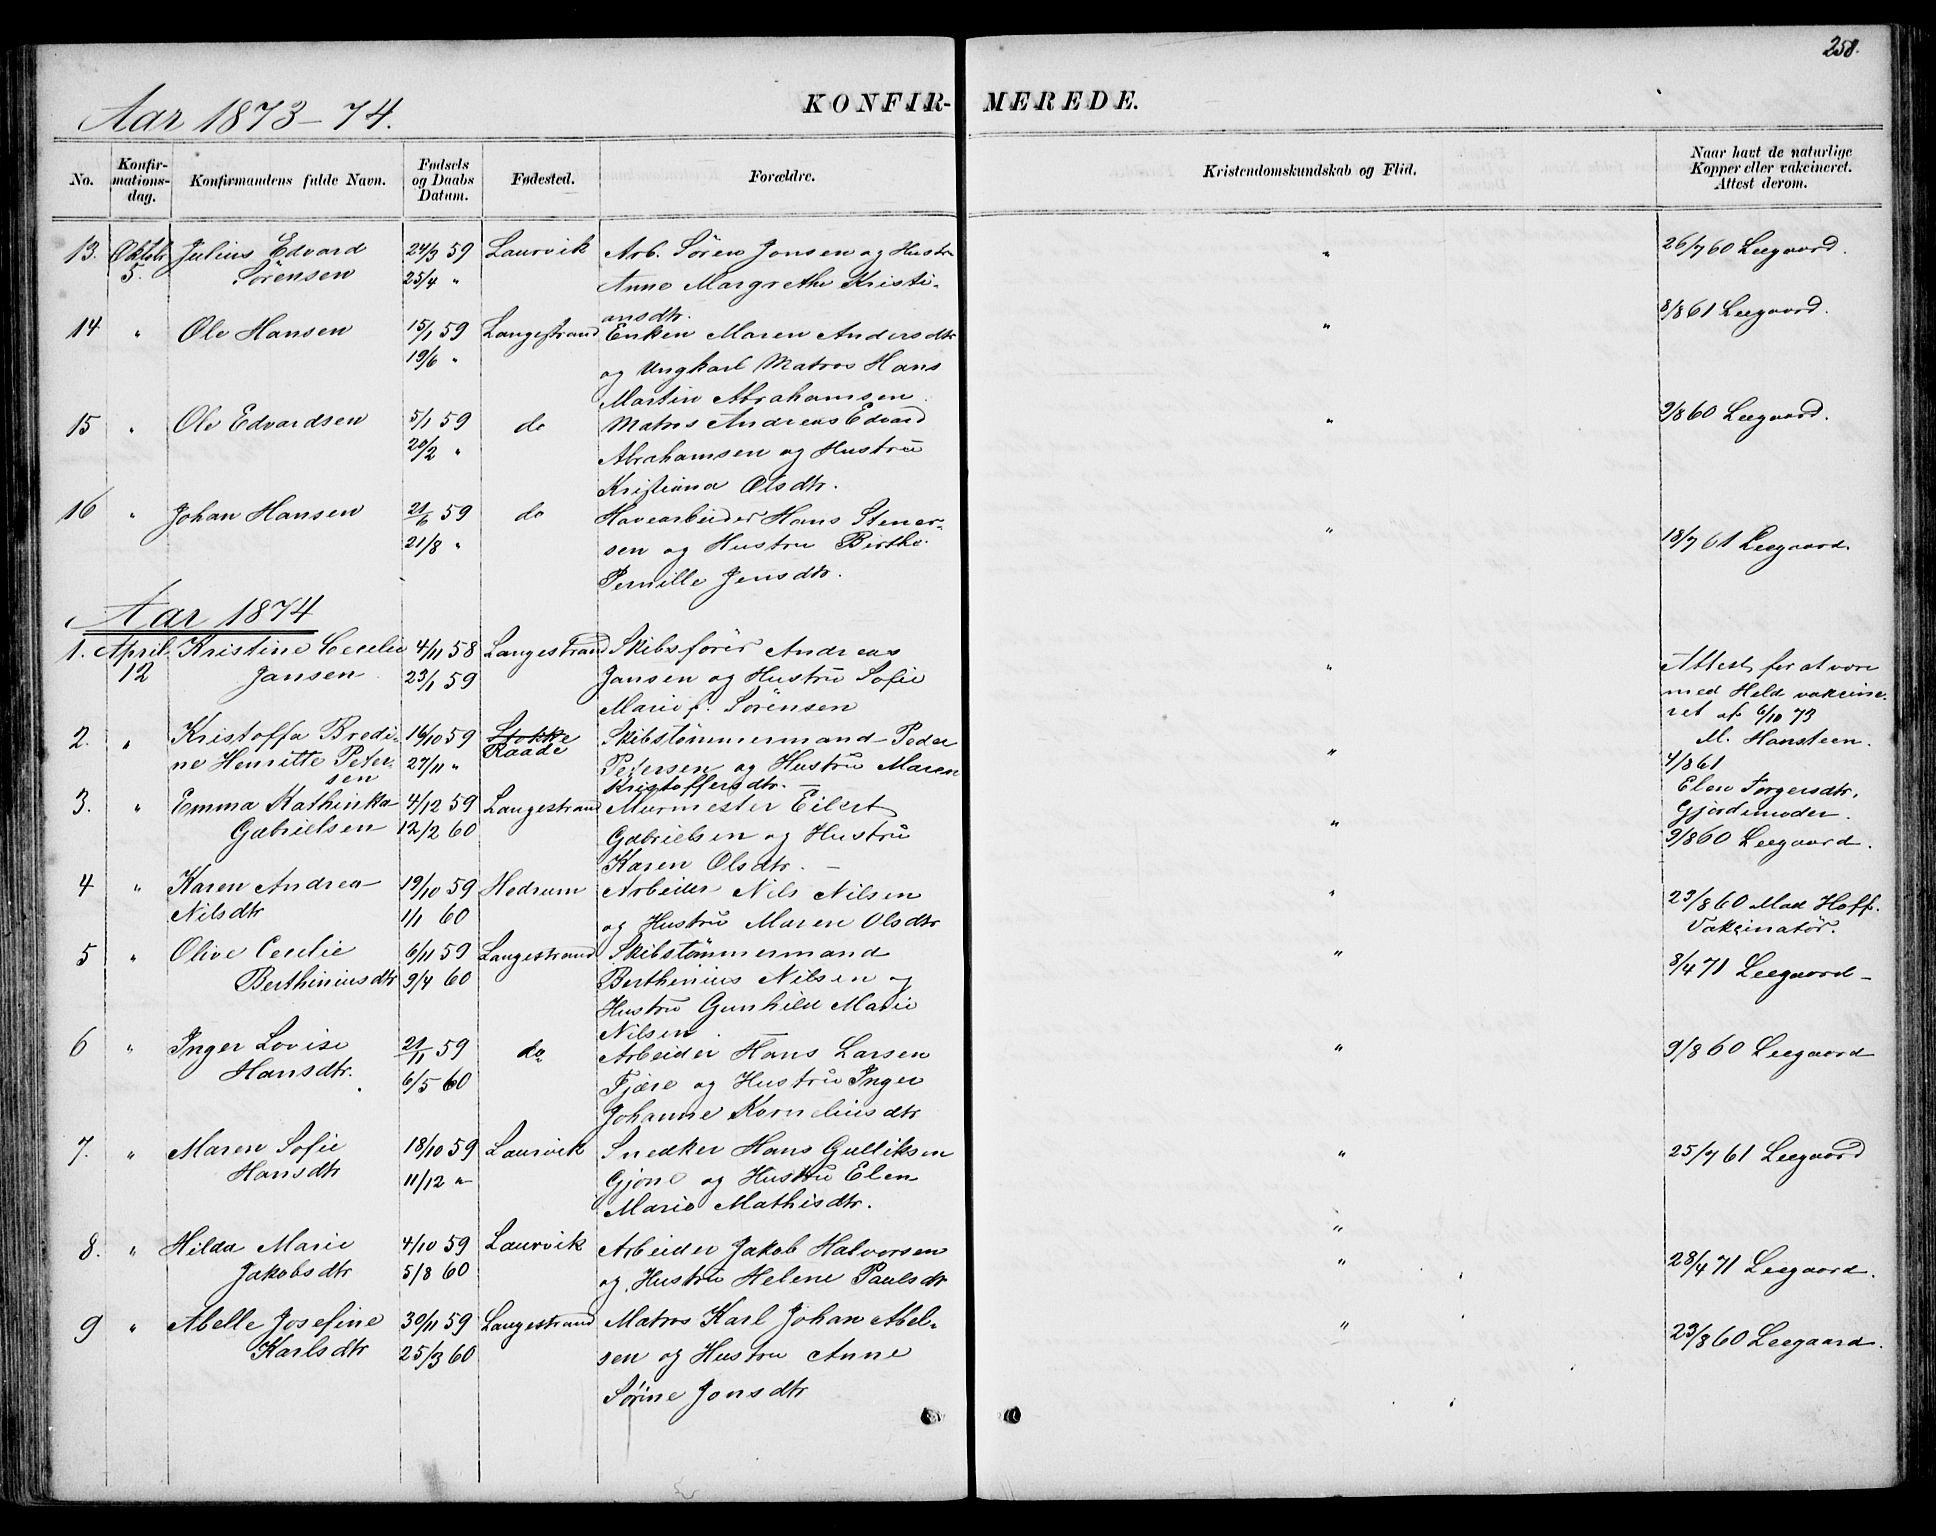 258.
Aar 1873-74.
KONFIR- MEREDE.
No. Konfir-mations-dag. Konfirmandens fulde Navn. Fødsels og Daabs Datum. Fødested. Forældre. Kristendomskundskab og Flid. Naar havt de naturlige Kopper eller vakcineret. Attest derom.
13. Oktbr Julius Edvard 24/3 59 Laurvik Arb. Sören Jonsen og Hustr " 26/7 60 Leegaard.
5. Sörensen 25/4 " Anne Margrethe Kristi-
ansdtr.
14 " Ole Hansen 15/1 59 Langestrand Enken Maren Andersdtr " 8/8 61 Leegaard.
19/6 " og Ungkarl Matros Hans
Martin Abrahamsen.
15 " Ole Edvardsen 5/1 59 do Matros Andreas Edvard " 2/8 60 Leegaard.
20/2 " Abrahamsen og Hustru
Kristiana Olsdtr.
16 " Johan Hansen 21/6 59 do Havearbeider Hans Stener- " 18/7 61 Leegaard.
21/8 " sen og Hustru Birthe
Pernille Jensdtr.
Aar 1874
1. April Kristine Cecelie 4/11 58 Langestrand Skibsfører Andreas " Attest for at være
12 Jansen 23/1 59 Jansen og Hustru Sofie med Held vakcine-
Marie f. Sörensen ret af 6/10 73
M. Hansteen.
2. " Kristoffa Bredi- 16/10 59 Stokke Skibstømmermand Peder " 4/8 61
Raade
ne Henriette Peter- 27/11 " Pedersen og Hustru Maren Elen Torgersdtr.
sen Kristoffersdtr. Gjordemoder.
3. " Emma Kathinka 4/12 59 Langestrand Murmester Eilert " 9/8 60 Leegaard.
Gabrielsen 12/2 60 Gabrielsen og Hustru
Karen Olsdtr.
4 " Karen Andrea 19/10 59 Hedrum Arbeider Nils Nilsen " 23/8 60 Mad Hoff.
Nilsdtr 1/1 60 og Hustru Maren Olsdtr Vakcinatör.
5 " Olive Cecelie 6/11 59 Langestrand Skibstömmermand " 8/4 71 Leegaard
Berthiniusdtr 9/4 60 Berthinius Nilsen og
Hustru Gunhild Marie
Nilsen.
6 " Inger Lovise 21/11 59 do Arbeider Hans Larsen " 9/8 60 Leegaard
Hansdtr. 6/5 60 Fjære og Hustru Inger
Johanne Korneliusdtr
7. " Maren Sofie 18/10 59 Laurvik Snedker Hans Gulliksen " 25/7 61 Leegaard
Hansdtr 11/12 " Gjone og Hustru Elen
Marie Mathisdtr.
"
8. " Hilda Marie 4/10 59 Laurvik Arbeider Jakob Halvorsen " 28/4 71 Leegaard.
Jakobsdtr 5/8 60 og Hustru Helene Paulsdtr
9 " Abelle Josefine 30/11 59 Langestrand Matros Karl Johan Abel- " 23/8 60 Leegaard.
Karlsdtr 25/3 60 sen og Hustru Anne
Sörine Jonsdtr